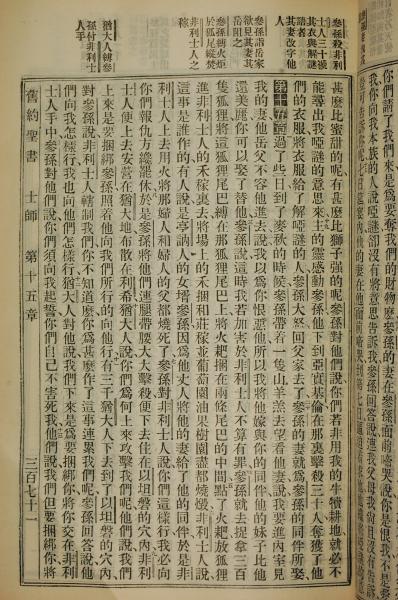 你們請了我們來是爲要奪我們的財物麼參孫的妻在參孫面前啼哭說你是恨我不是
我你向我本族的人說啞謎卻沒有將意思告訴我參孫回答說連我父母我尙且沒有告訴
參孫殺非利
士人三十後
其衣與解謎
諸者
其妻改字他
人
參孫詣岳家
欲見其妻其
岳阻之
參孫縛火炬
於狐尾縱焚
非利士人之
稼
猶大人縛參
孫付非利士
人手
甚麼比蜜甜的呢有甚麼比獅子强的呢參孫對他們說你們若非用我的牛犢耕地就必不
能尋出我啞謎的意思來主的靈感動參孫他下到亞實基倫在那裏擊殺三十人奪獲了他
們的衣服將衣服給了解啞謎的人參孫大怒回父家去了參孫的妻就爲參孫的同伴所娶
第十五章過了些日到了麥秋的時候參孫帶着一隻山羊羔去望看他妻說我要進內室見
我的妻他岳父不容他進去說我以爲你恨惡他所以我將他嫁與你的同伴他的妹子比他
還美麗你可以娶了替他參孫說這時我若加害於非利士人不算有罪參孫就去捉拿三百
隻狐狸將這狐狸尾巴縛在那狐狸尾巴上將火把捆在兩條尾巴的中間點了火把放狐狸
進非利士人的禾稼裏去將場上的禾捆和莊稼並葡萄園油果樹園盡都燒燬非利士人說
這事是誰作的有人說是亭訥人的女壻參孫因爲他丈人將他的妻給了他的同伴於是非
利士人上去用火將那婦人和婦人的父都燒死了參孫對非利士人說你們這樣行我必向
你們報仇方纔罷休於是參孫將他們連腿帶腰大大擊殺便下去住在以坦磐的穴內非利
士人便上去安營在猶大地布散在利希猶大人說你們爲何上來攻擊我們呢他們說我們
上來是要捆綁參孫照着他向我們所行的向他行有三千猶大人下去到了以坦磐的穴內
對參孫說非利士人轄制我們你不知道麼你爲甚麼作了這事連累我們呢參孫回答說他
們向我怎樣行我也向他們怎樣行猶大人對他說我們下來是爲要捆綁你將你交在非利
士人手中參孫對他們說你們須向我起誓你們自己不害死我他們說我們但要捆綁你將
舊約聖書 士師 第十五章 三百七十一